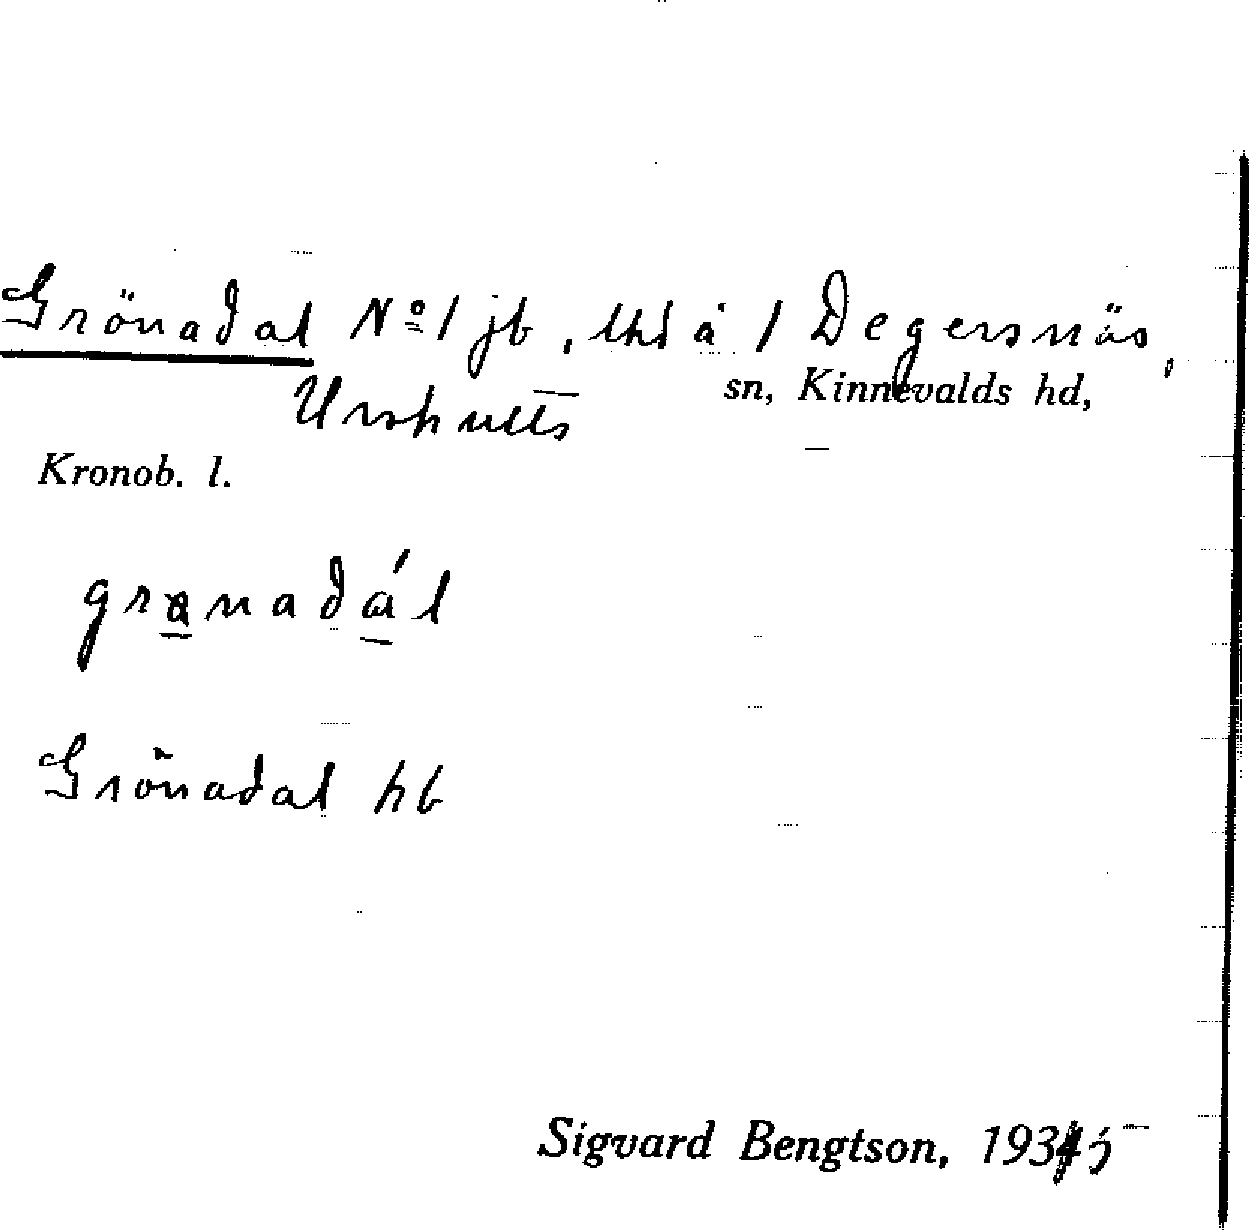 Grönadal Nº 1 jb, lhd å 1 Degersnäs,
Urshults sn, Kinnevalds hd,
Kronob. l.
granadál
Grönadal hb
Sigvard Bengtson, 1935